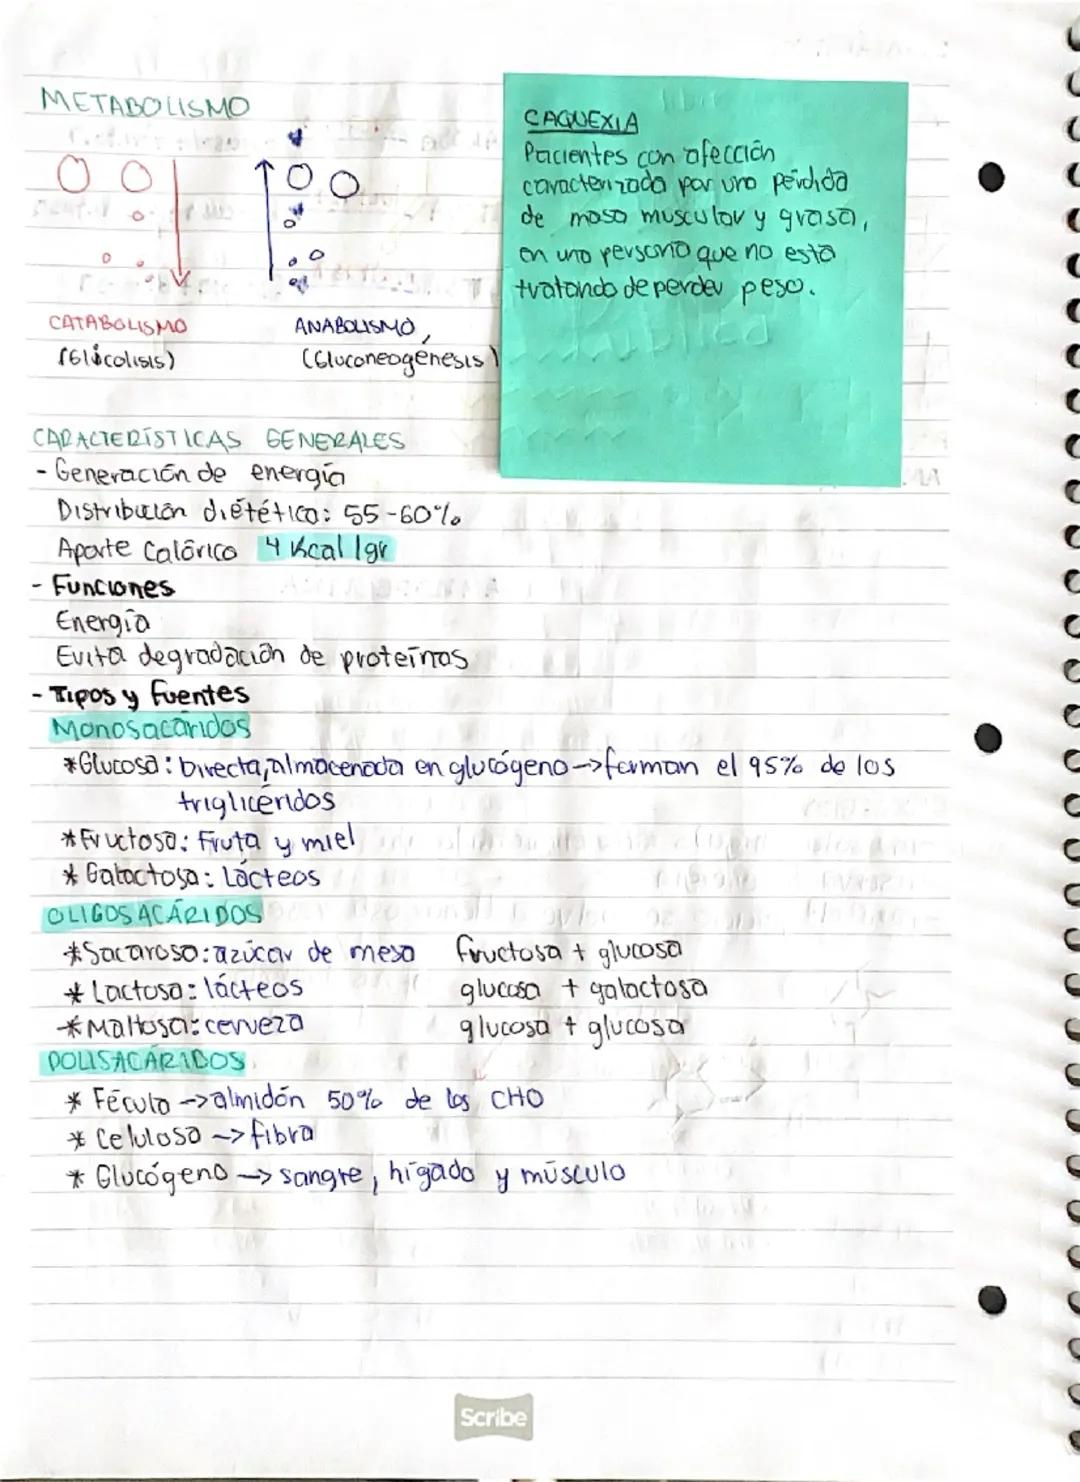 METABOLISMO
CATABOLISMO
(Glucolisis)
ANABOLISMO
(Gluconeogénesis)
CAQUEXIA
Pacientes con afección
caracterizada por una pérdida
de masa muscular y grasa,
en una persona que no esta
tratando de perder peso.
CARACTERÍSTICAS GENERALES
- Generación de energía
Distribución dietética: 55-60%
Aporte Calórico 4 Kcal/gr
- Funciones
Energía
Evita degradación de proteínas
- Tipos y fuentes
Monosacáridos
*Glucosa: Directa, almacenada en glucógeno -> forman el 95% de los
triglicéridos
*Fructosa: Fruta y miel
* Galactosa: Lácteos
OLIGOSACÁRIDOS
*Sacarosa: azúcar de mesa fructosa + glucosa
* Lactosa: lácteos glucosa + galactosa
*Maltosa: cerveza glucosa + glucosa
POLISACÁRIDOS
* Fécula -> almidón 50% de los CHO
* Celulosa -> fibra
* Glucógeno -> sangre, hígado y músculo
Scribe